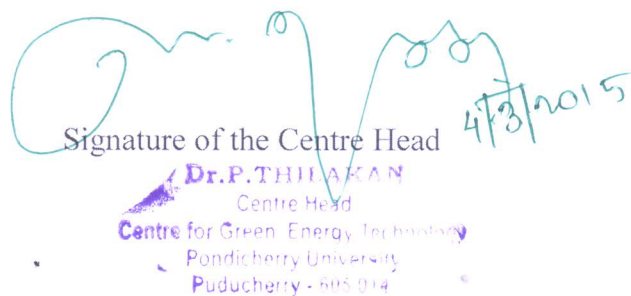 4/3/2015
Signature of the Centre Head
Dr.P.THILAKAN
Centre Head
Centre for Green Energy Technology
Pondicherry University
Puducherry - 605 014